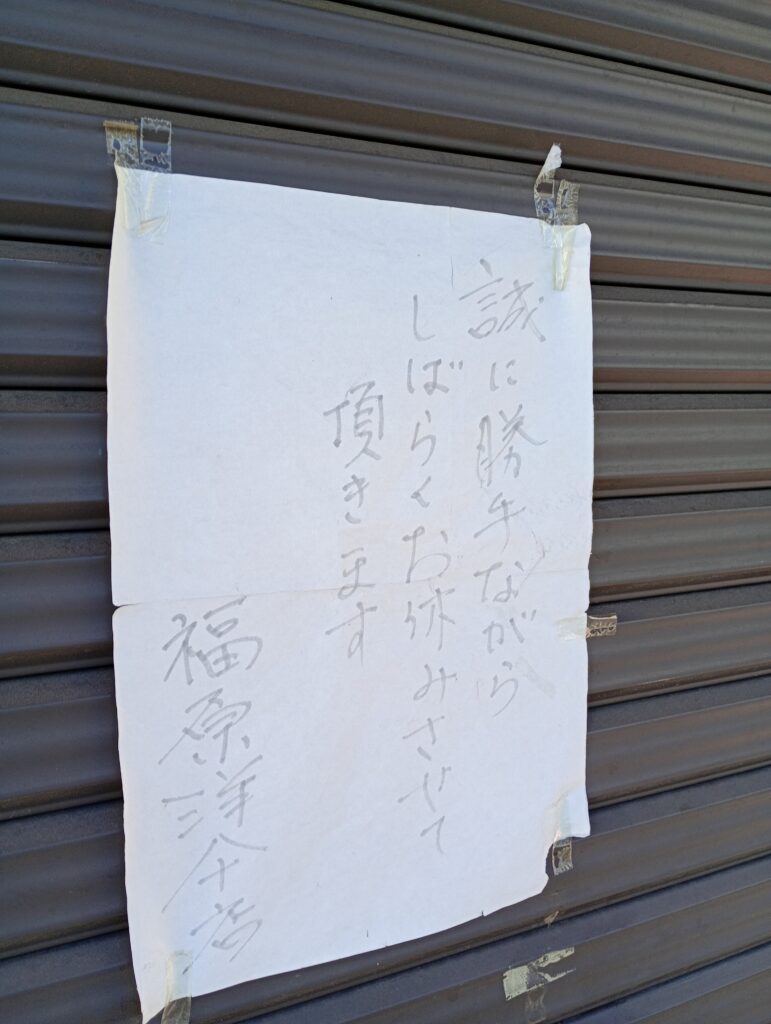 誠に勝手ながら
しばらくお休みさせて
頂きます
福原洋傘店